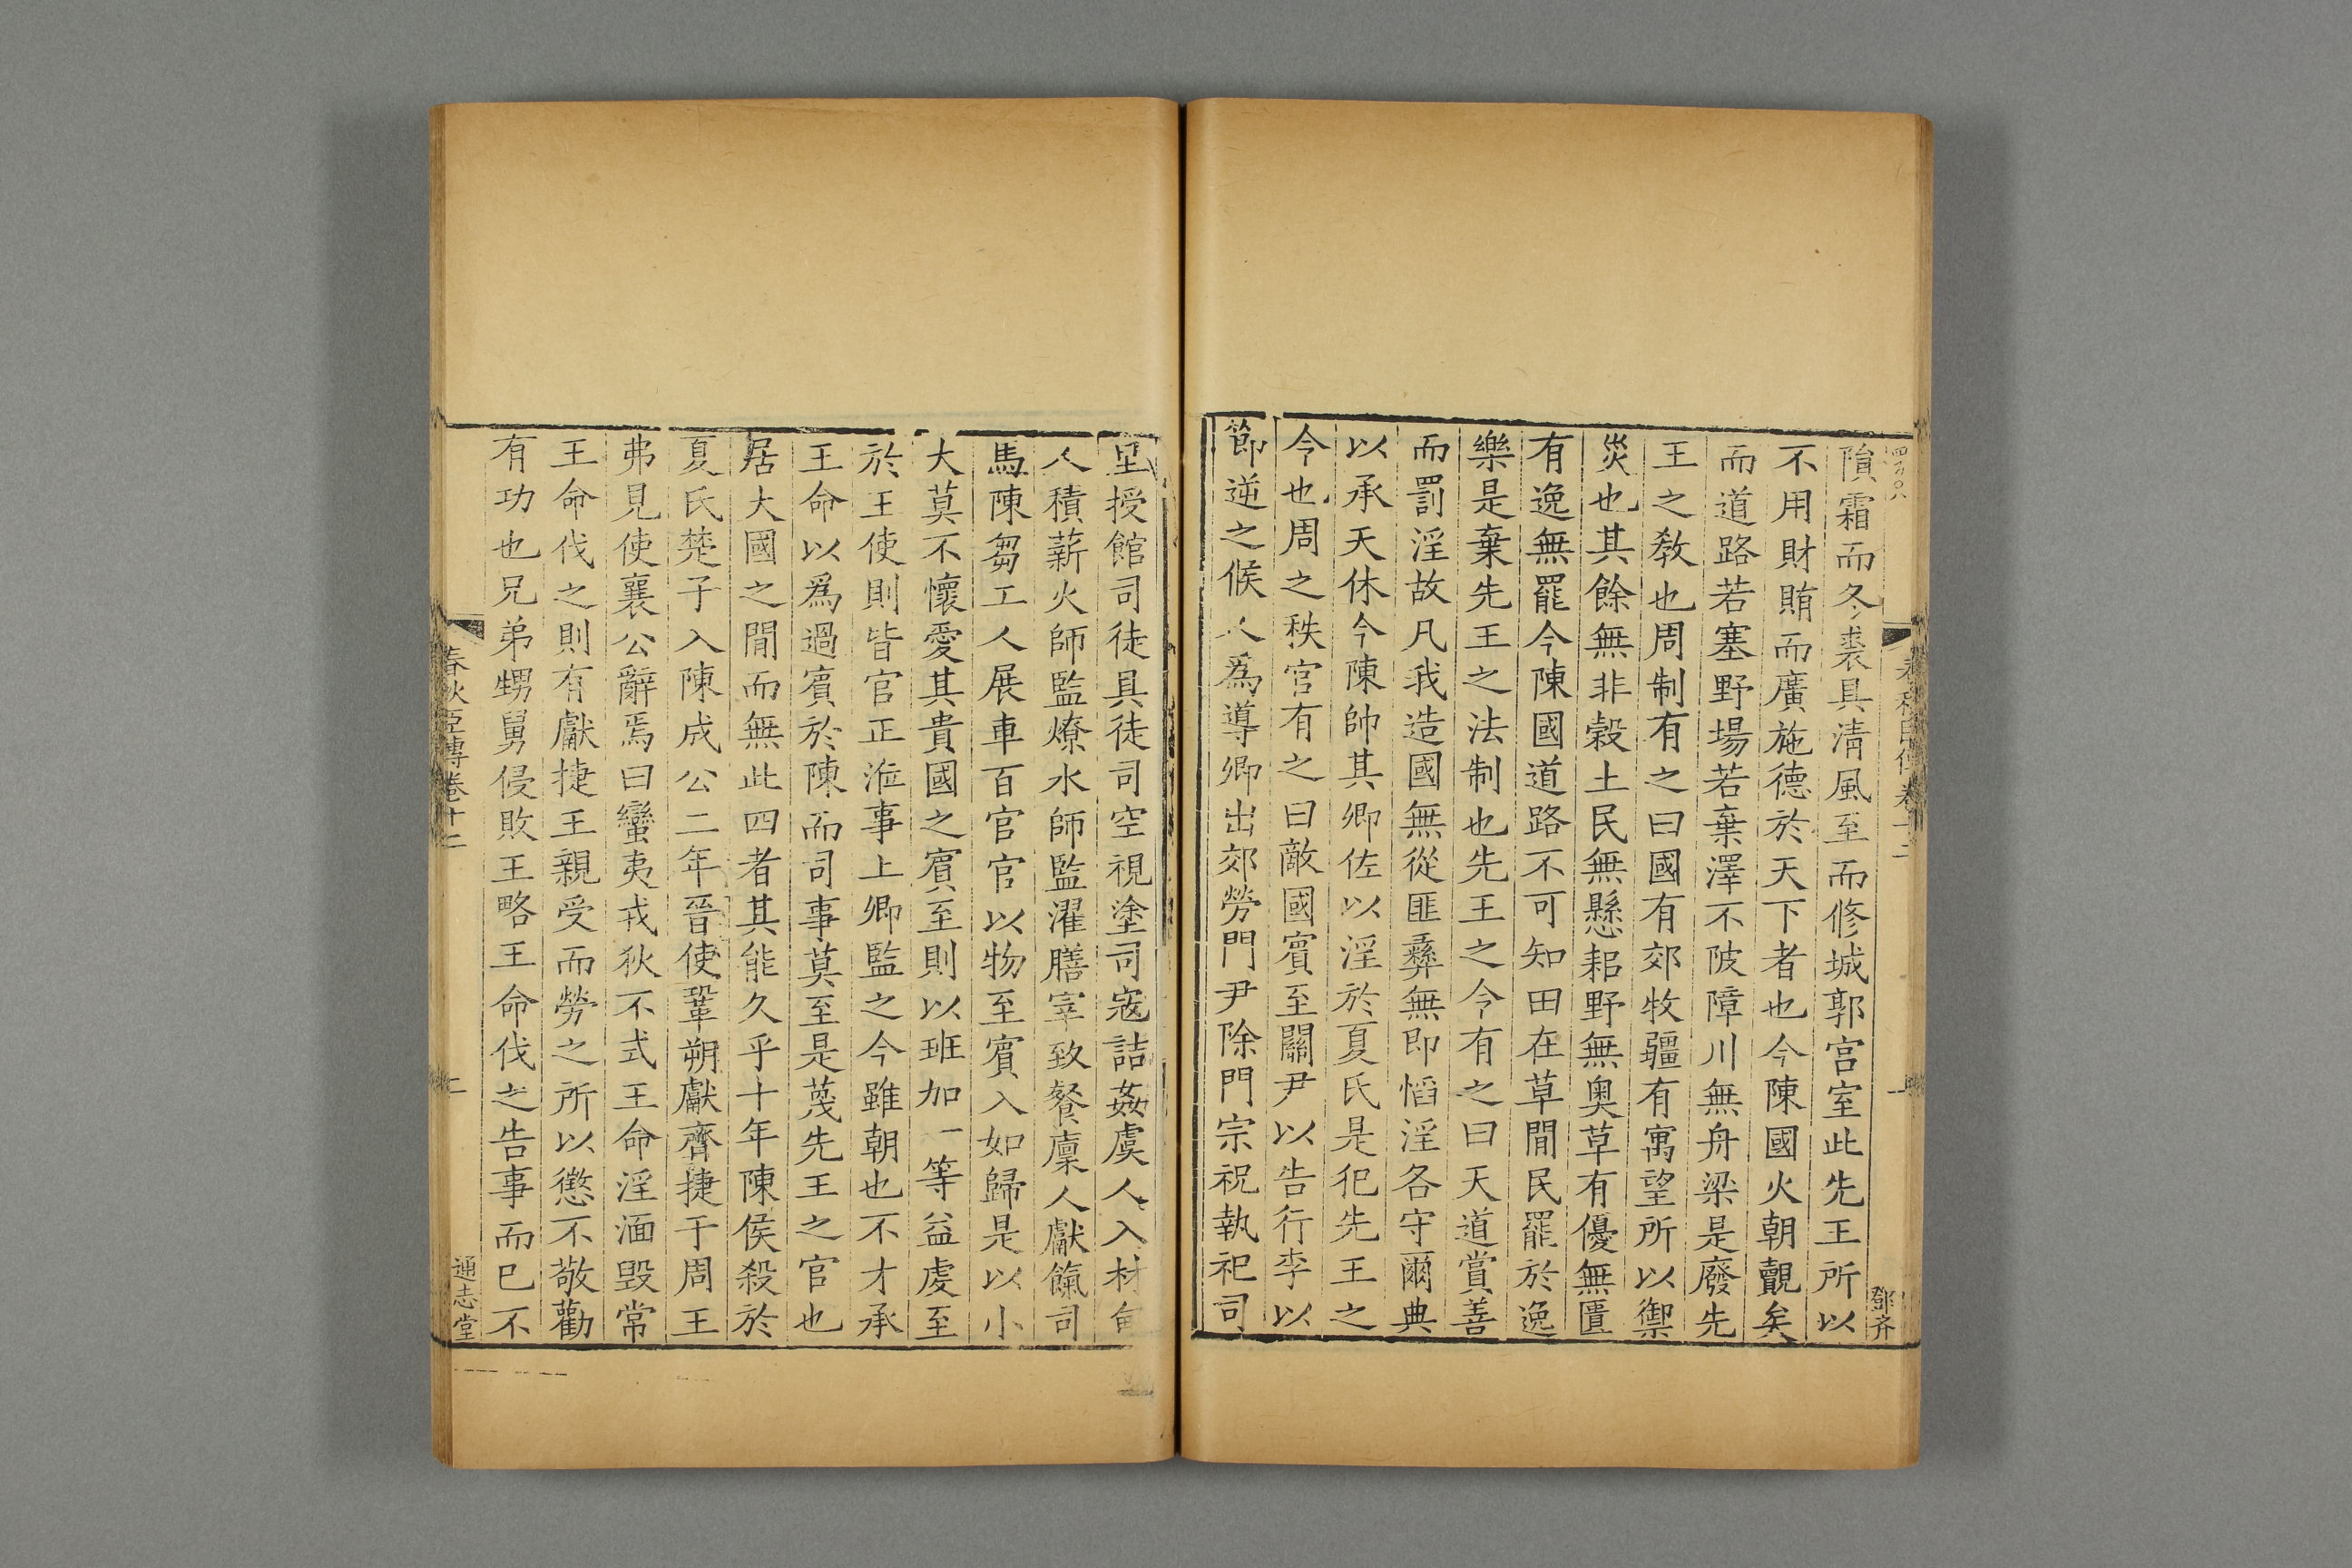 春秋臣傳卷十二
一
鄧齐
隕霜而冬裘具清風至而修城郭宫室此先王所以
不用財賄而廣施德於天下者也今陳國火朝覿矣
而道路若塞野場若棄澤不陂障川無舟梁是廢先
王之敎也周制有之曰國有郊牧疆有寓望所以禦
災也其餘無非穀土民無懸耜野無奧草有優無匱
有逸無罷今陳國道路不可知田在草間民罷於逸
樂是棄先王之法制也先王之令有之曰天道賞善
而罰淫故凡我造國無從匪彝無即慆淫各守爾典
以承天休今陳帥其卿佐以淫於夏氏是犯先王之
令也周之秩官有之曰敵國賓至關尹以告行李以
節逆之候人爲導卿出郊勞門尹除門宗祝執祀司
里授館司徒具徒司空視塗司寇詰姦虞人入材甸
人積薪火師監燎水師監濯膳宰致餐廩人獻餼司
馬陳芻工人展車百官官以物至賓入如歸是以小
大莫不懷愛其貴國之賓至則以班加一等益虔至
於王使則皆官正涖事上卿監之今雖朝也不才承
王命以爲過賓於陳而司事莫至是蔑先王之官也
居大國之間而無此四者其能久乎十年陳侯殺於
夏氏楚子入陳成公二年晉使鞏朔獻齊捷于周王
弗見使襄公辭焉曰蠻夷戎狄不式王命淫湎毀常
王命伐之則有獻捷王親受而勞之所以懲不敬勸
有功也兄弟甥舅侵敗王略王命伐之告事而已不
春秋臣傳卷十二
二
通志堂